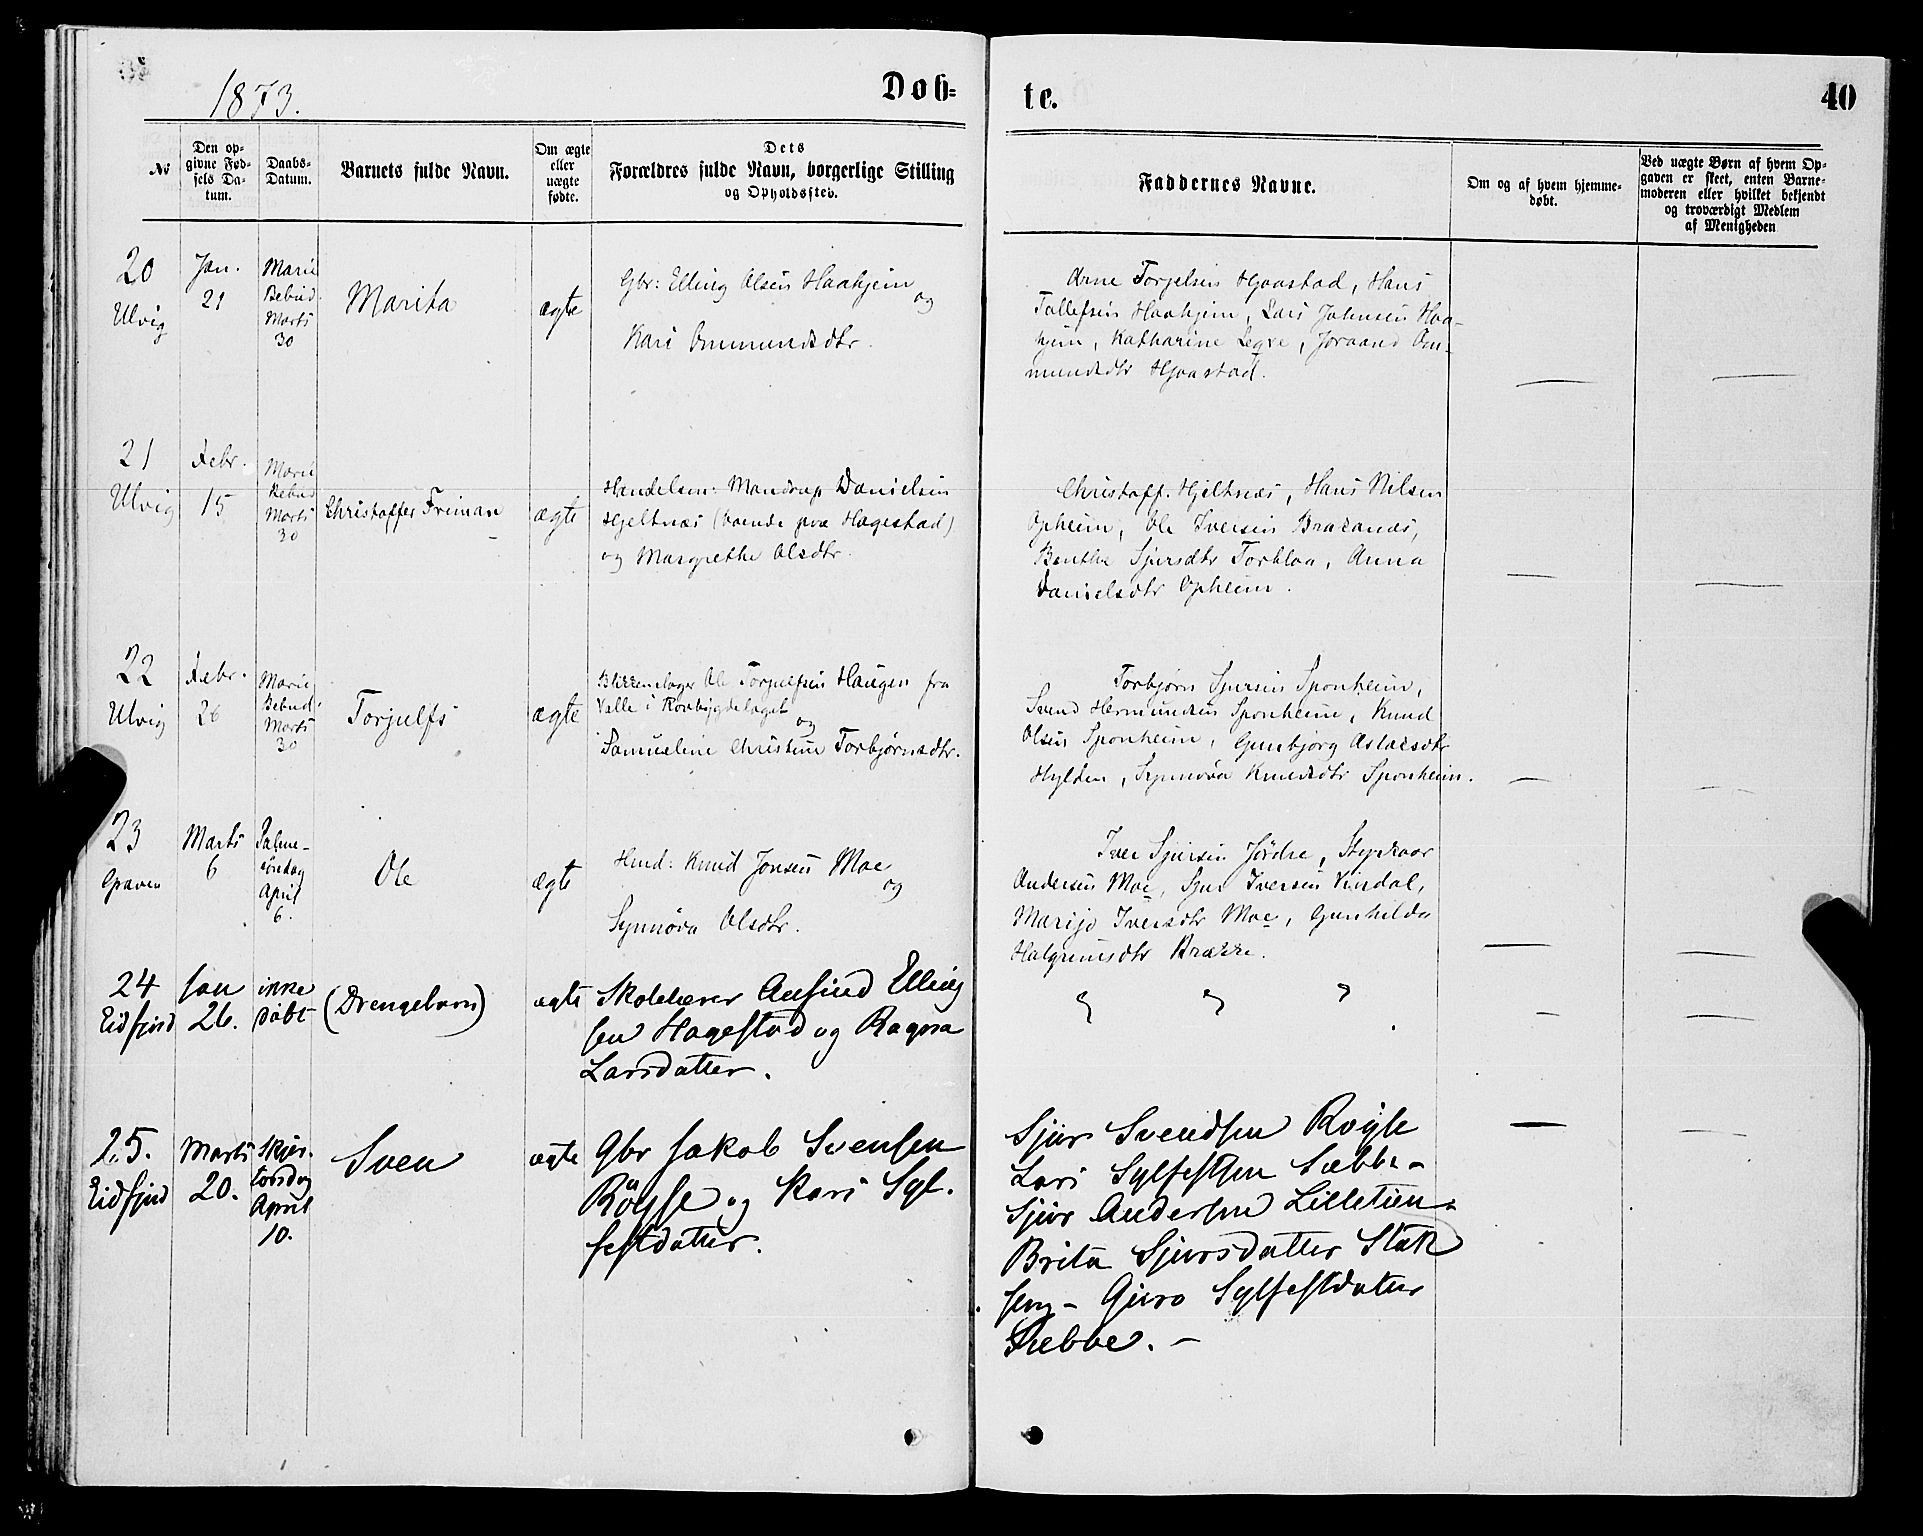 1873.
Døb=
te.
40
No
Den op-
givne Fød-
sels Da-
tum.
Daabs-
Datum.
Barnets fulde Navn.
Om ægte
eller
uægte
fødte.
Dets
Forældres fulde Navn, borgerlige Stilling
og Opholdssted.
Faddernes Navne.
Om og af hvem hjemme-
døbt.
Ved uægte Børn af hvem Op-
gaven er skeet, enten Barne-
moderen eller hvilket bekjendt
og troværdigt Medlem
af Menigheden
20
Ulvig
Jan.
21
Marie
Bebud.
Marts
30
Marita
ægte
Gbr: Elling Olsen Haaheim og
Kari Ommundsdtr.
Arne Torjelsen Hjaastad, Hans
Tollefsen Haaheim, Lars Johnsen Haa-
heim, Katharine Legre, Joraand Om-
mundsdtr Hjaastad.
21
Ulvig
Febr.
15
Marie
Bebud
Marts
30
Christoffer Friman
ægte
Handelsm: Mandrup Danielsen
Hjeltnæs (boende paa Hagestad)
og Margrethe Olsdtr.
Christoff. Hjeltnæs, Hans Nilsen
Opheim, Ole Iversen Brakanæs,
Benthe Sjursdtr Torblaa, Anna
Danielsdtr Opheim.
22
Ulvig
Febr.
26
Marie
Bebud.
Marts
30
Torjulfs
ægte
Blikkenslager Ole Torjulfsen Haugen fra
Valle i Robygdelaget og
Samueline Christine Torbjørnsdtr.
Torbjørn Sjursen Sponheim,
Svend Hermundsen Sponheim, Knud
Olsen Sponheim, Gunbjørg Aslaksdtr
Hylden, Synnøva Knudsdtr Sponheim.
23
Graven
Marts
6
Palme-
søndag
April
6.
Ole
ægte
Hmd: Knud Jonsen Moe og
Synnøva Olsdtr.
Iver Sjursen Jørdre, Styrkaar
Andersen Moe, Sjur Iversen Vindal,
Marijo Iversdtr Moe, Gunhilda
Halgrimsdtr Brække.
24
Eidfjord
Jan
26.
ikke
døbt
(Drengebarn)
ægte
Skolelærer Anfind Elling
sen Hagestad og Ragna
Larsdatter.
" " "
25.
Eidfjord
Marts
20.
Skjær.
torsdag
April
10.
Sven
ægte
Gbr Jakob Svensen
Røysse og Kari Syl.
festdatter.
Sjur Svendsen Røyse
Lars Sylfestsen Sæbbe-
Sjur Andersen Lilletun-
Brita Sjursdatter Stak
seng - Guro Sylfestdatter
Sæbbe. -